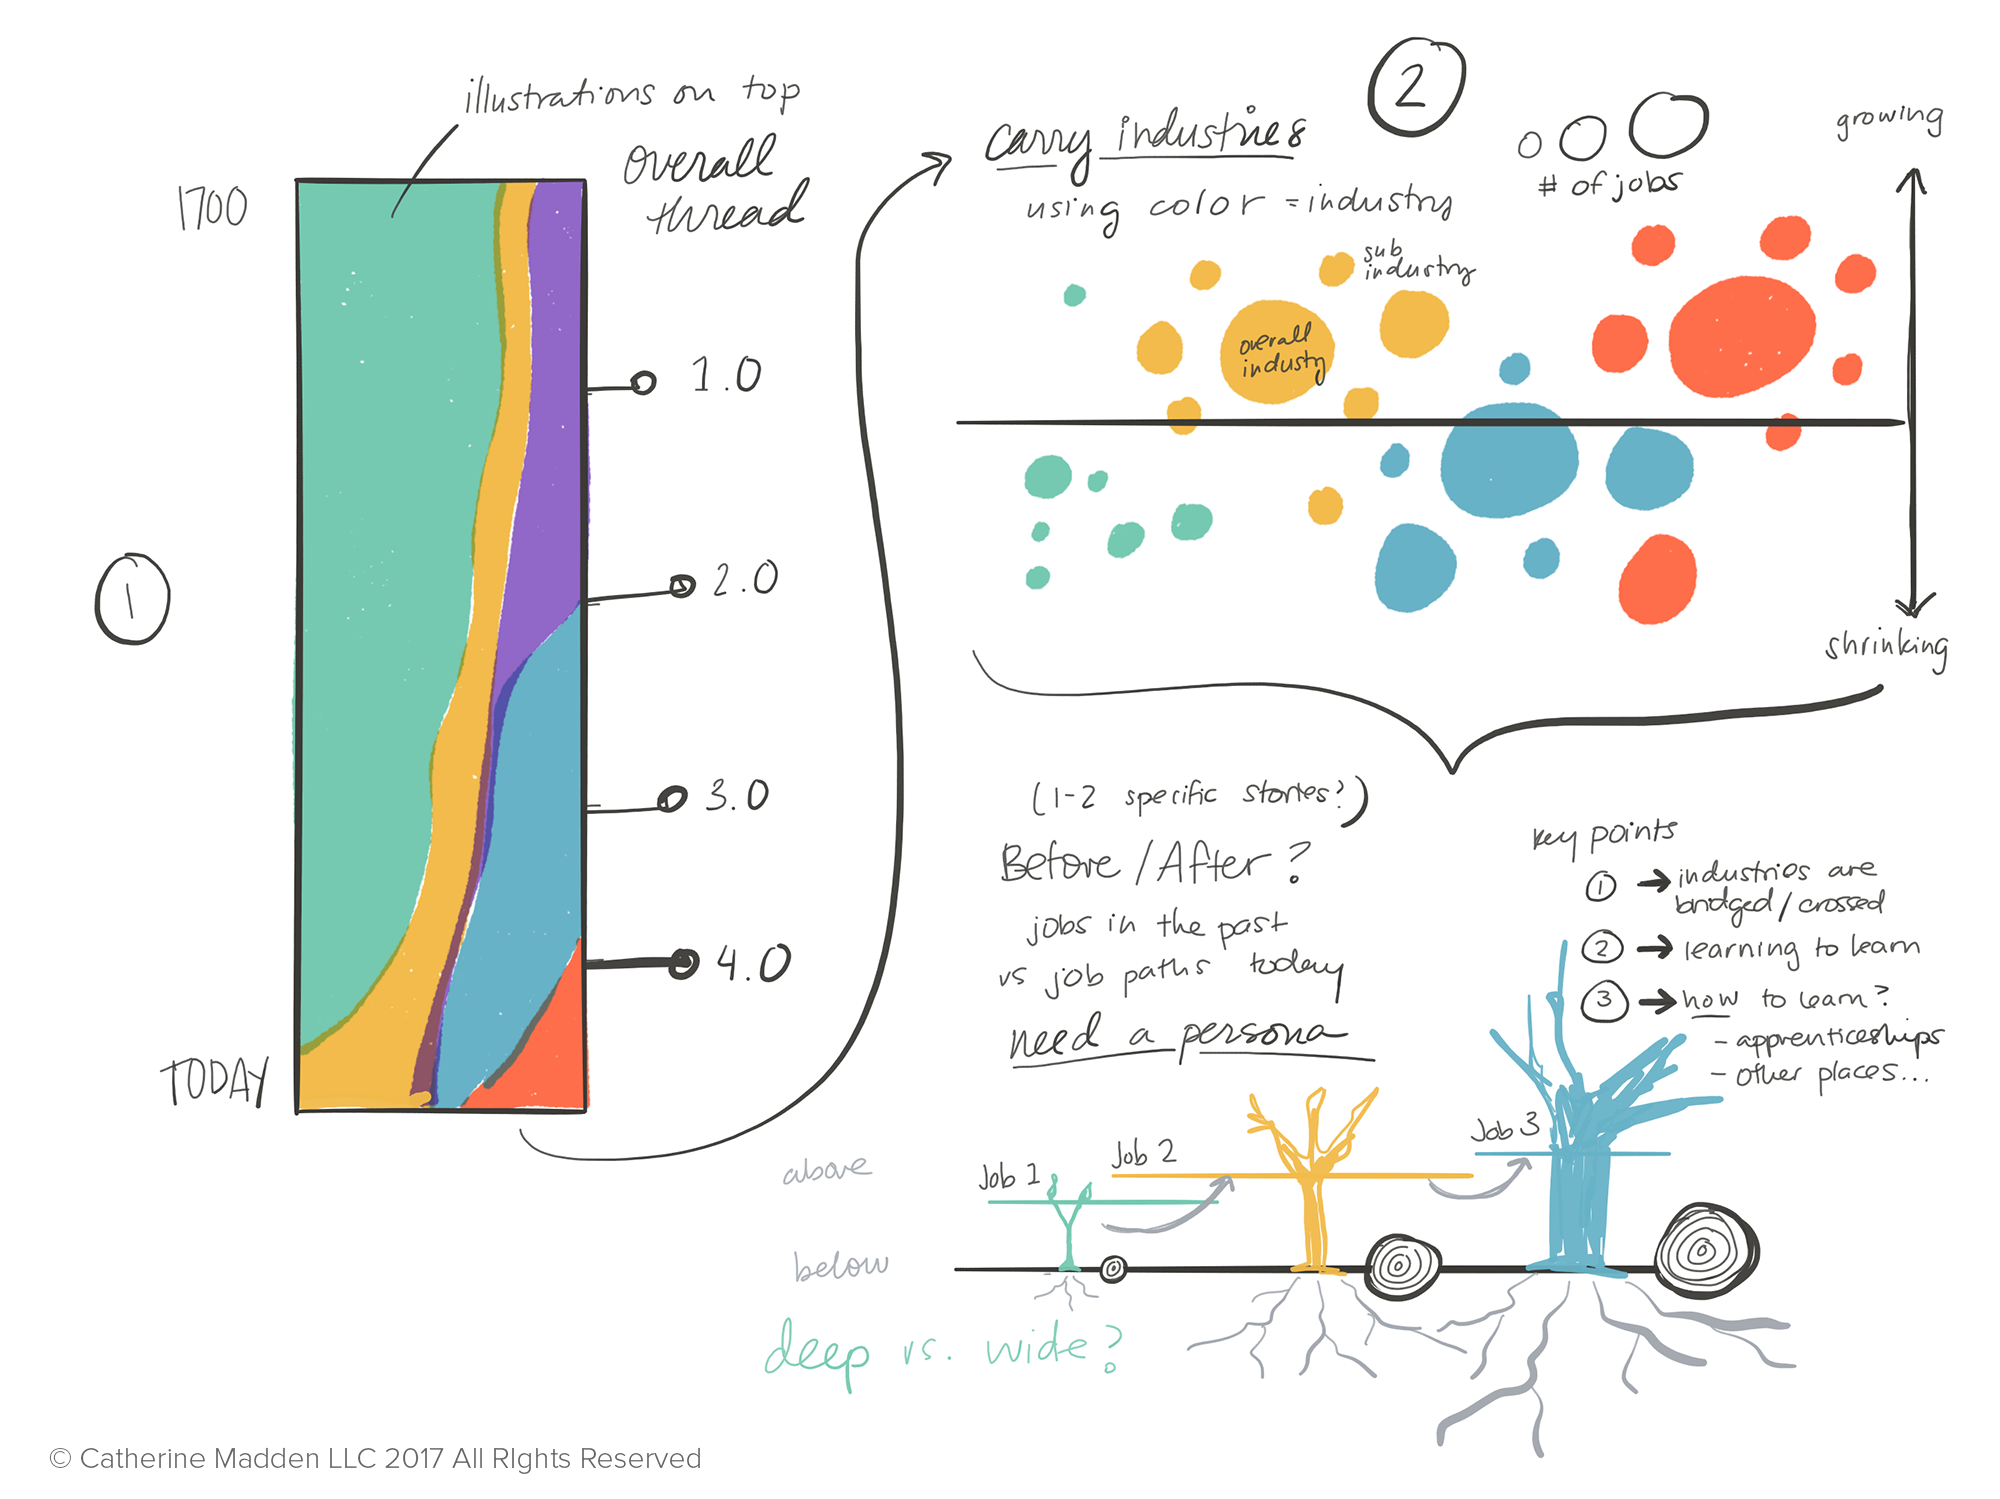 illustrations on top
overall
thread
1700
1.0
2.0
1
3.0
4.0
TODAY
2
carry industries
using color = industry
# of jobs
growing
sub
industry
overall
industry
shrinking
(1-2 specific stories?)
Before / After?
jobs in the past
vs job paths today
need a persona
key points
1 → industries are
bridged / crossed
2 → learning to learn
3 → how to learn?
- apprenticeships
- other places...
above
below
Job 1
Job 2
Job 3
deep vs. wide?
© Catherine Madden LLC 2017 All RIghts Reserved